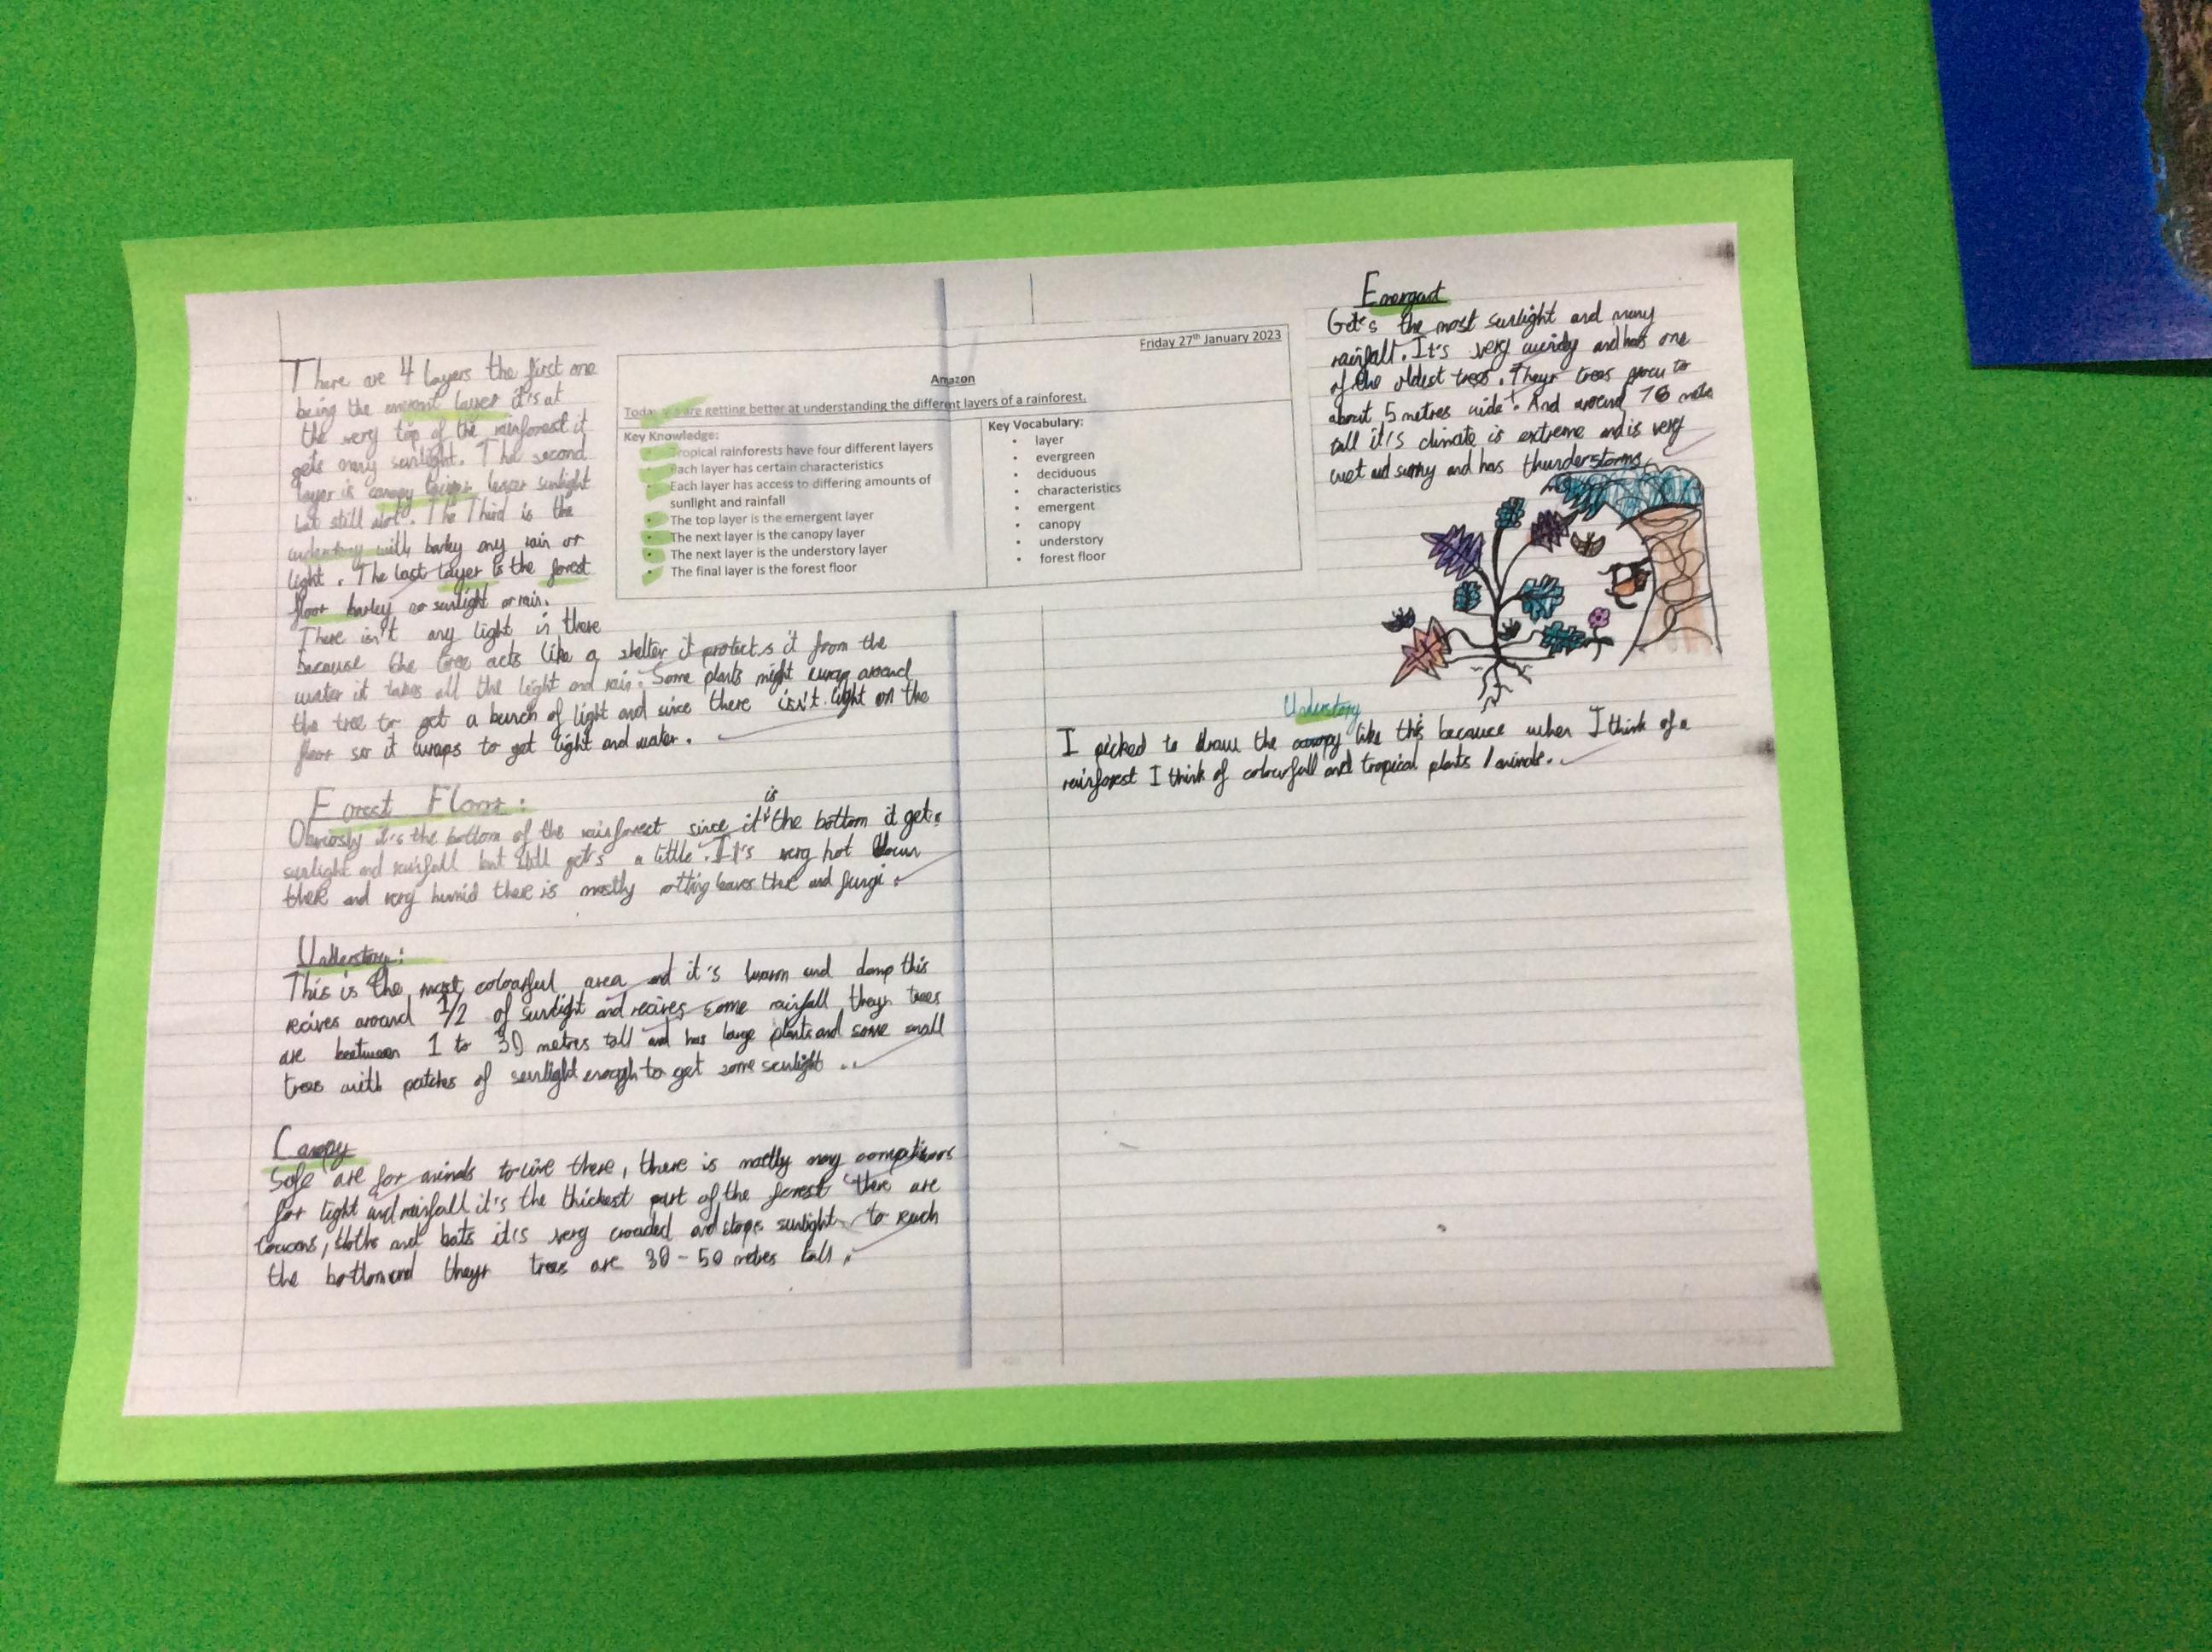 There are 4 layers the first one
being the layer it's at
the very top of the rainforest it
gets many sunlight. The second
layer is canopy layer lesser sunlight
but still alot. The Third is the
understory with barley any rain or
light. The last layer is the forest
floor barley no sunlight or rain.
There isn't any light in there
because the tree acts like a shelter it protects it from the
water it takes all the light and rain. Some plants might wrap around
the tree to get a bunch of light and since there isn't light on the
floor so it wraps to get light and water.
Forest Floor:
it's the bottom of the rainforest since it is the bottom it gets
sunlight and rainfall but still gets a little. It's very hot down
there and very humid there is mostly rotting leaves there and fungi.
Understory:
This is the most colourful area and it's warm and damp this
recives around 1/2 of sunlight and recives some rainfall theyr trees
are beetween 1 to 30 metres tall and has large plants and some small
trees with patches of sunlight enough to get some sunlight.
Canopy
Safe are for animals to live there, there is mostly many
for light and rainfall it's the thickest part of the forest there are
toucans, sloths and bats it's very crowded and stops sunlight to reach
the bottom and theyr trees are 30-50 metres tall.
Friday 27th January 2023
Amazon
Today are getting better at understanding the different layers of a rainforest.
Key Knowledge:
• Tropical rainforests have four different layers
• Each layer has certain characteristics
• Each layer has access to differing amounts of
sunlight and rainfall
• The top layer is the emergent layer
• The next layer is the canopy layer
• The next layer is the understory layer
• The final layer is the forest floor
Key Vocabulary:
• layer
• evergreen
• deciduous
• characteristics
• emergent
• canopy
• understory
• forest floor
Get's the most sunlight and many
rainfall. It's very windy and has one
of the oldest trees. Theyr trees grow to
about 5 metres wide. And around 76 metres
tall it's climate is extreme and is very
wet and sunny and has thunderstorms
Understory
I picked to draw the canopy like this because when I think of a
rainforest I think of colourfull and tropical plants / animals.